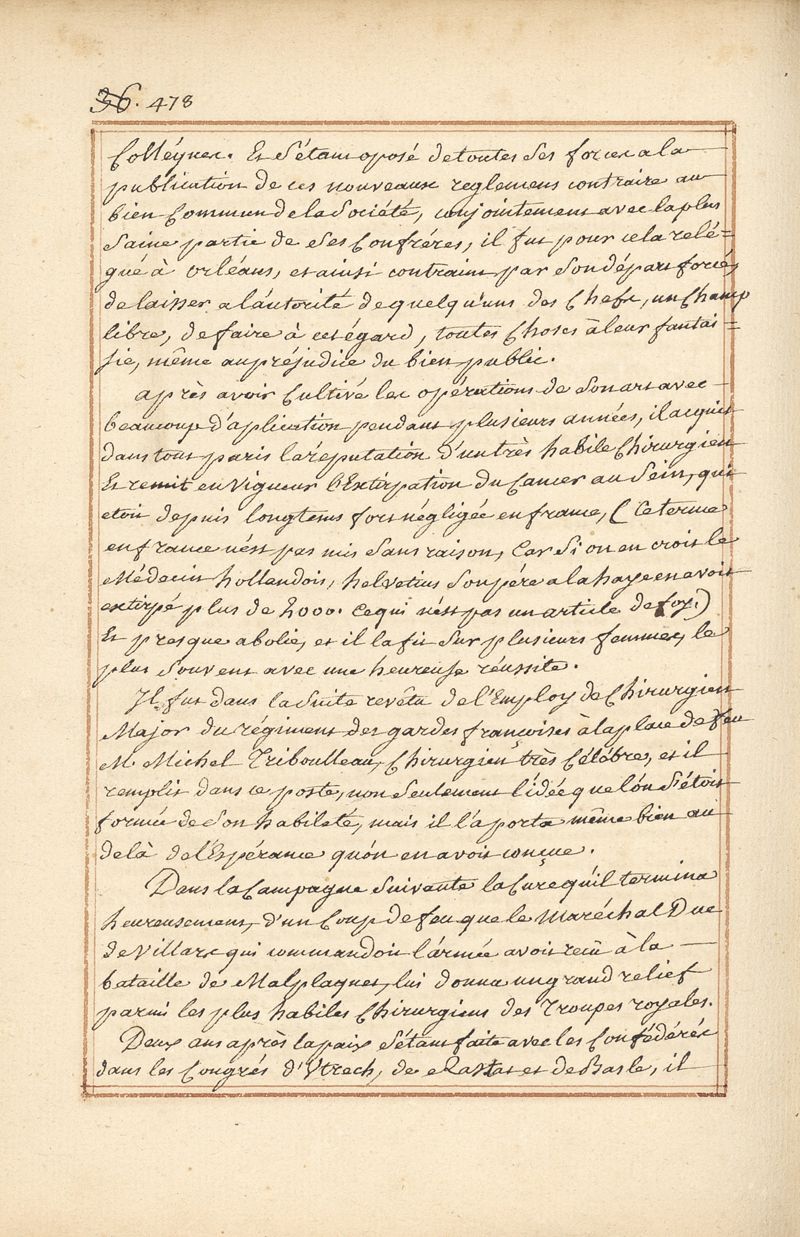 36. 478
Collégues. Et s'étant oposé de toutes ses forces a la
publication de ces nouveaux reglemens contraire au
bien commun de la Société, conjointement avec la plus
saine partie de ses Confréres, il fut pour cela relé=
gué à orléans, et ainsi contraint par son départ forcé,
de laisser a l'autorité de quelqu'uns des Chefs, un Champ
libre, de faire à cet égard, toutes Choses à leur fantai=
sie, même au préjudice du bien public.
après avoir Cultivé les opérations de son art avec
beaucoup d'aplication pendant plusieurs années, il acquit
dans tout paris la réputation d'un très habile Chirurgien
Et remit en vigueur l'Extirpation du Cancer au Sein, qui
etoit depuis longtems fort négligée en france, (Ce terme
en france n'est pas mis sans raison, Car si on en croit le
Médecin hollandois, helvetius son pére a la haye en avoit
extirpé plus de 2000. ce qui n'est pas un article de foy.)
Et presque abolie, et il la fit sur plusieurs femmes, le
plus souvent avec une heureuse réussite.
Il fut dans la suite revêtu de l'Employ de Chirurgien
Major du régiment des gardes françoises à la place de feu
M. Michel Triboulleau, Chirurgien très Célébre, et il
remplit dans ce poste, non seulement l'idée que l'ón s'étoit
formée de son habileté, mais il l'a porta même bien au
delà de l'Espérance qu'ón en avoit conçue.
Dans la Campagne suivante la Cure qu'il termina
heureusement, d'un Coup de feu que le Maréchal Duc
de Villars qui commandoit l'armée avoit reçu à la
bataille de Malplaquet, lui donna un grand relief
parmi les plus habiles Chirurgiens des Troupes royales.
Deux ans après la paix s'étant faite avec les Confédérés
dans les Congrés d'Utrech, de Rastat et de Basle, il